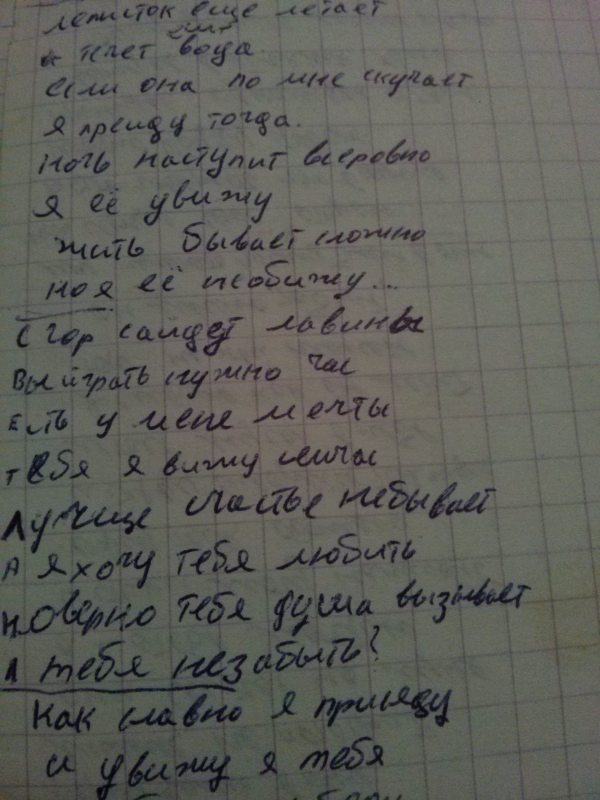 леписток еще летает
и течет вода
если она по мне скучает
я преиду тогда.
ночь наступит всеровно
я её увижу
жить бывает сложно
но я её необижу...
с гор сайдет лавины
выиграть нужно час
есть у меня мечты
тебя я вижу сейчас
лутчще счастье небывает
А я хочу тебя любить
новерно тебя душа вызывает
А тебя незабыть?
как славно я приеду
и увижу я тебя